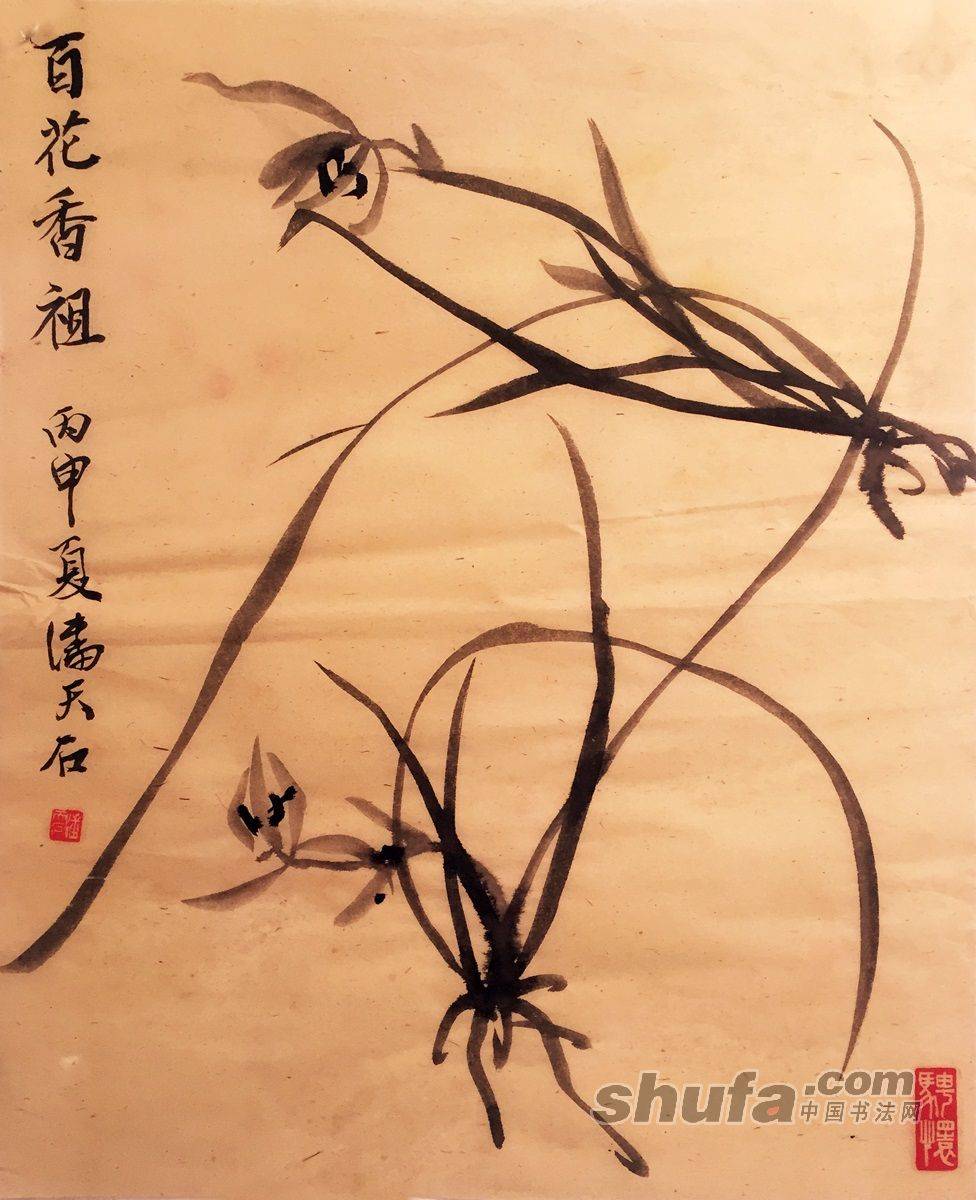 百花香祖 丙申夏潘天石
shufa.com
中国书法网
骋怀